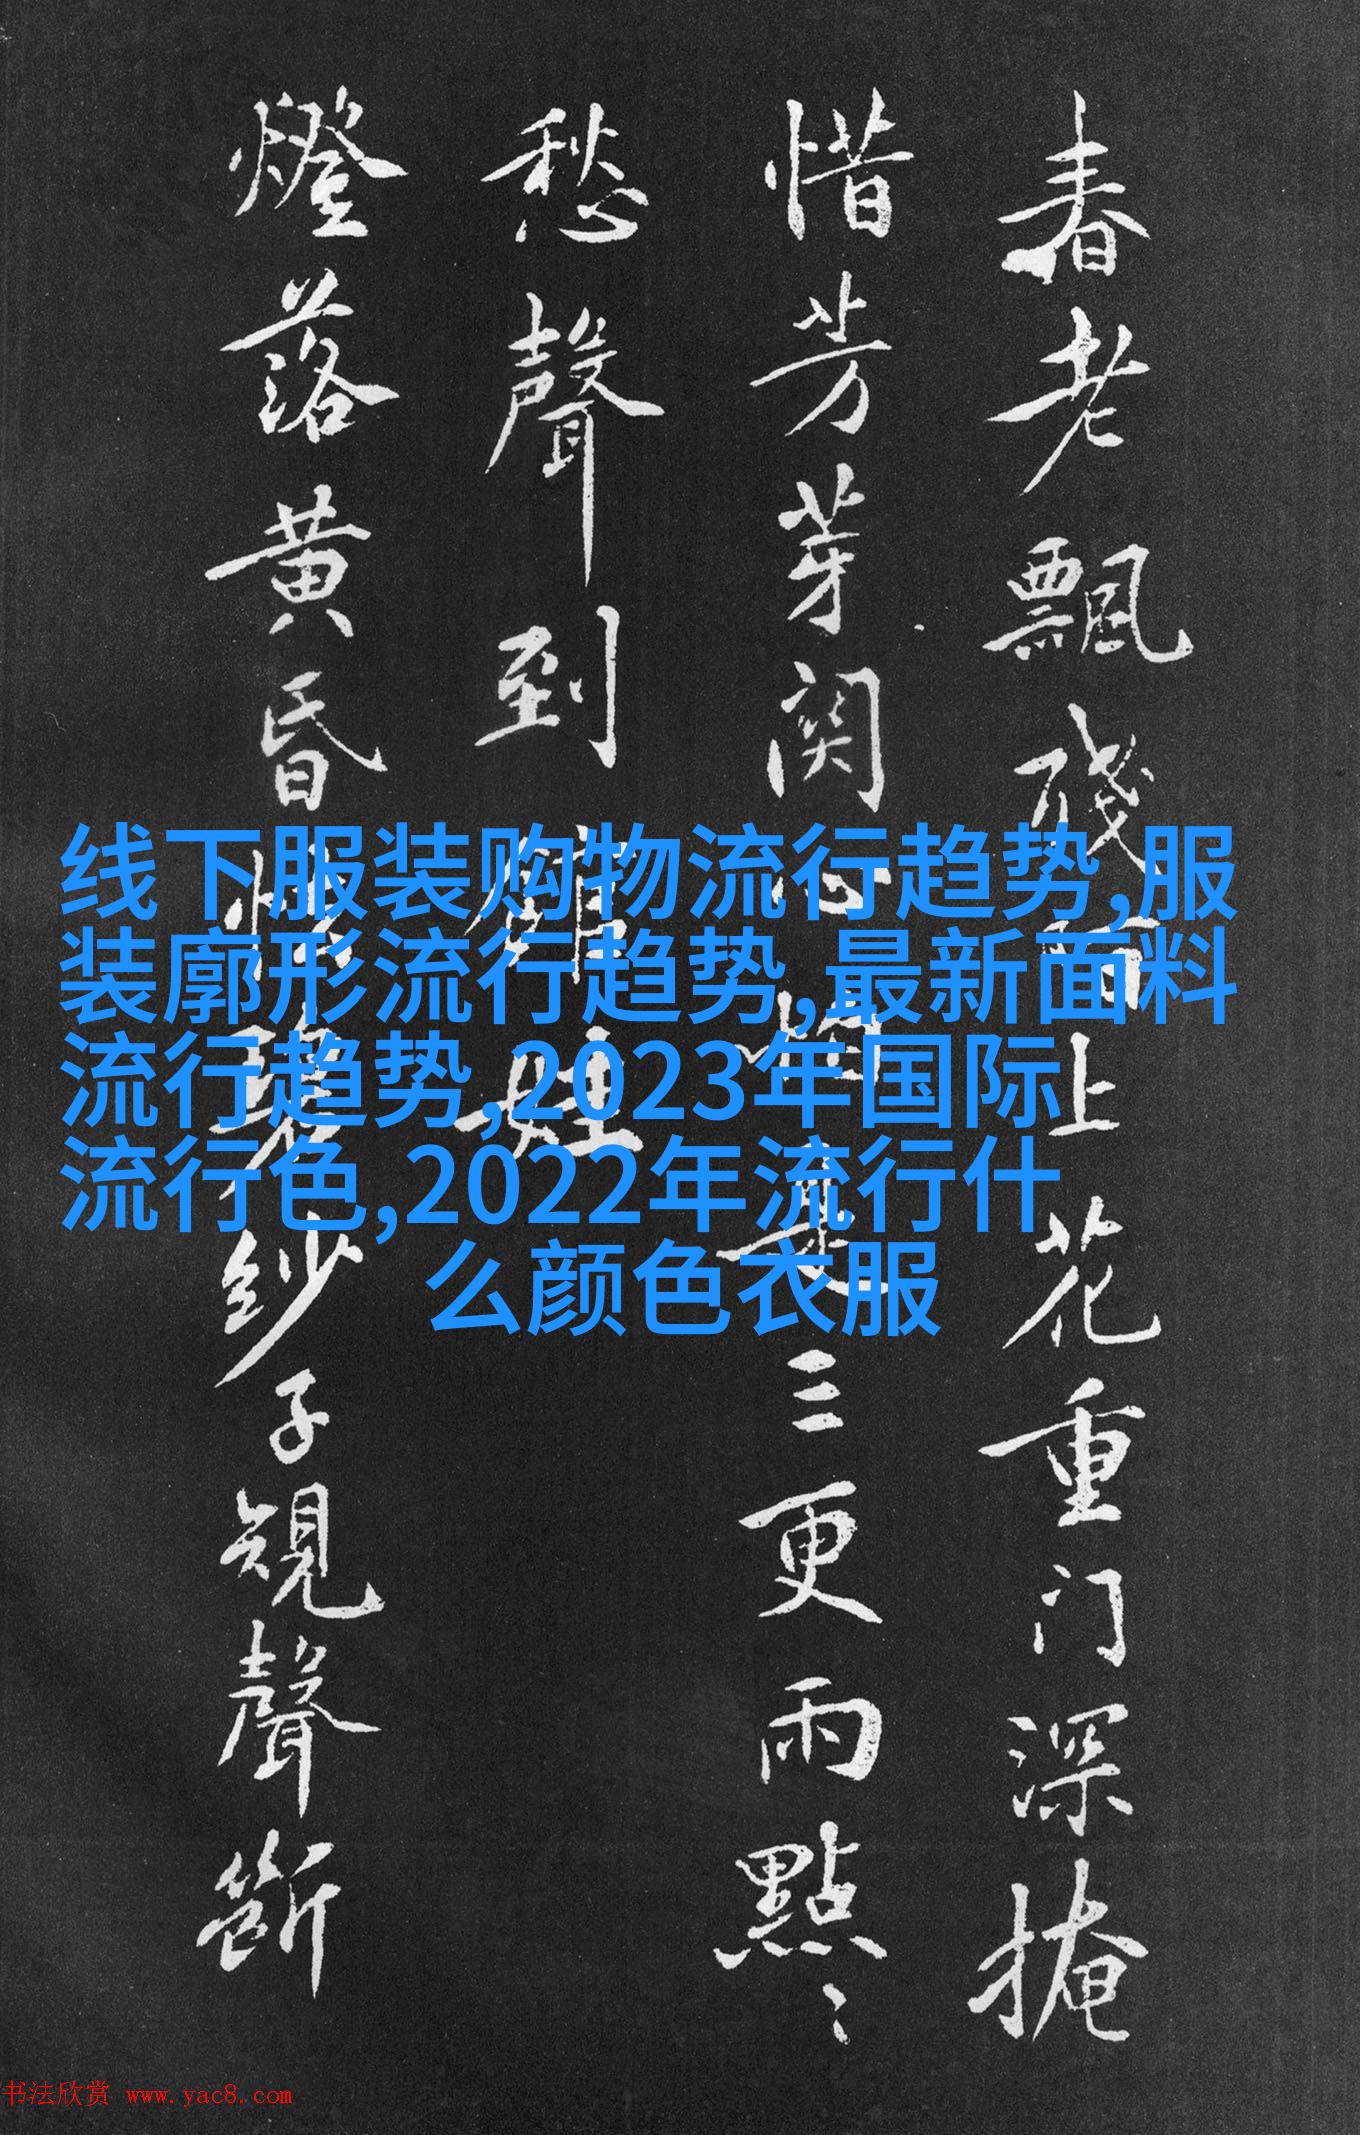 春老飄殘上花重门深掩
惜芳芽関心三更雨點〻
愁聲到
燈落黄昏碧紗子規聲斷
线下服装购物流行趋势,服
装廓形流行趋势,最新面料
流行趋势,2023年国际
流行色,2022年流行什
么颜色衣服
书法欣赏 www.yac8.com